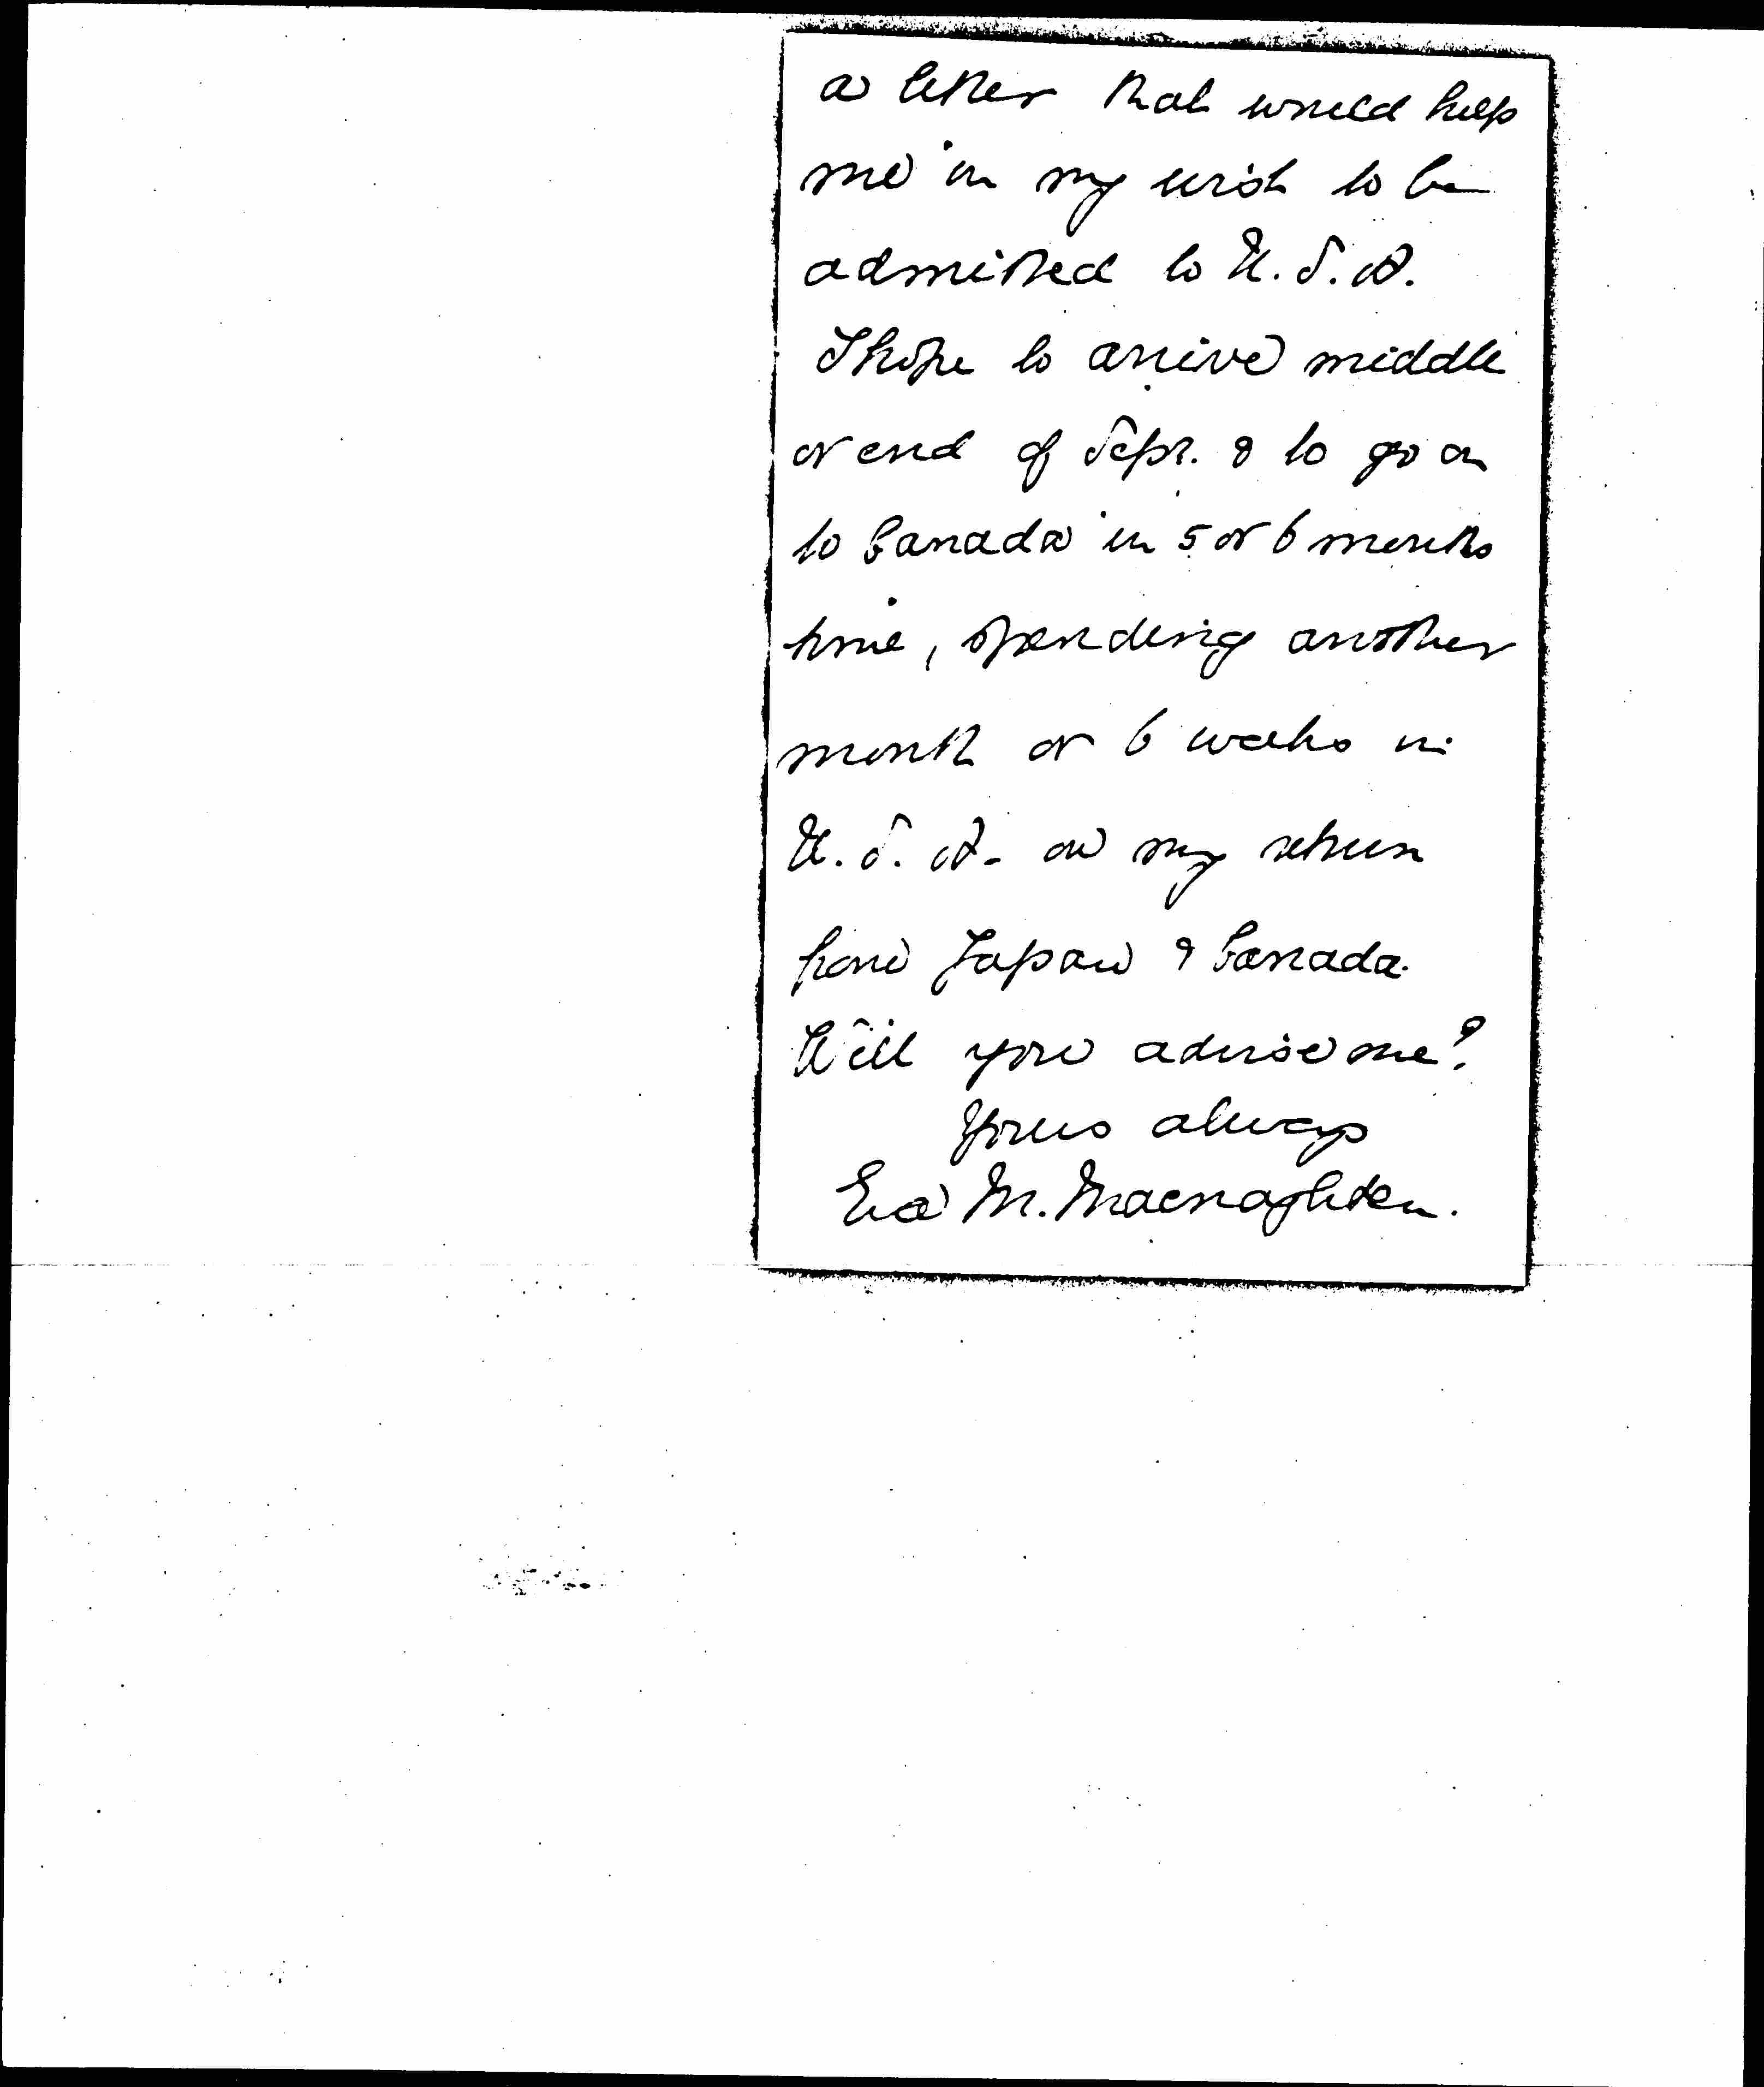 a letter that would help
me in my wish to be
admitted to U.S.A.
I hope to arrive middle
or end of Sept. & to go on
to Canada in 5 or 6 months
time, spending another
month or 6 weeks in
U.S.A. on my return
from Japan & Canada.
Will you advise me?
Yours always
Eva M. Macnaghten.